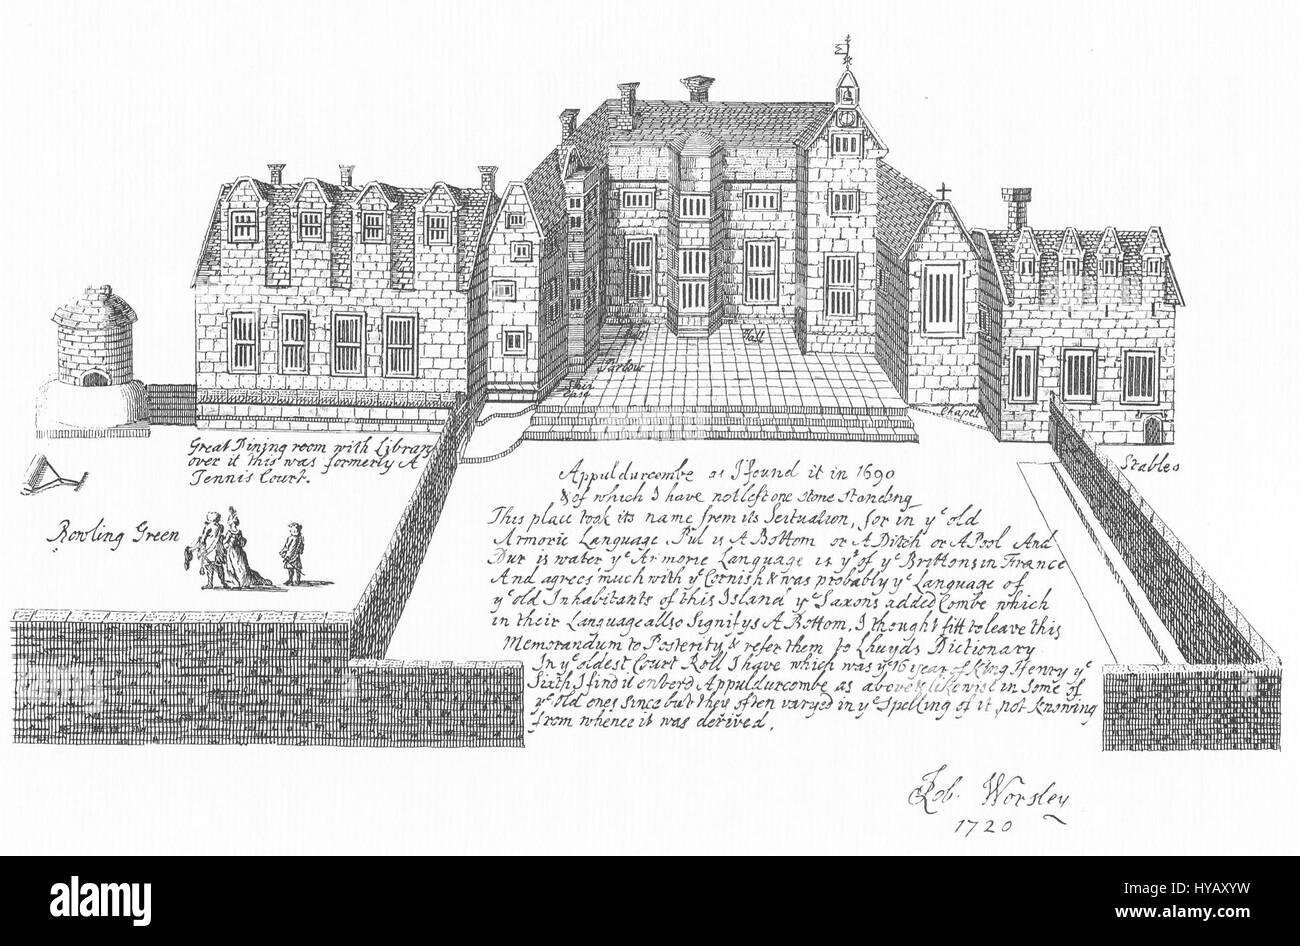 Hall
Hall
Parlour
Stair Case
Chapel
Stables
Great Dining room with Library
over it this was formerly A
Tennis Court.
Bowling Green
Appuldurcombe as I found it in 1690
& of which I have not left one stone standing
This place took its name from its Scituation, for in yᵉ old
Armoric Language Pul is A Bottom or A Ditch or A Pool And
Dur is water yᵉ Armoric Language is yᵗ of yᵉ Brittons in France
And agrees much with yᵉ Cornish & was probably yᵉ Language of
yᵉ old Inhabitants of this Island yᵉ Saxons added Combe which
in their Language allso Signifys A Bottom, I thought fitt to leave this
Memorandum to Posterity & refer them to Lhuyds Dictionary
In yᵉ oldest Court Roll I have which was yᵉ 16 year of King Henry yᵉ
Sixth I find it enterd Appuldurcombe as above & likewise in some of
yᵉ old ones since but they often varyed in yᵉ Spelling of it, not knowing
from whence it was derived.
Rob. Worsley
1720
alamy stock photo
HYAXYW
www.alamy.com